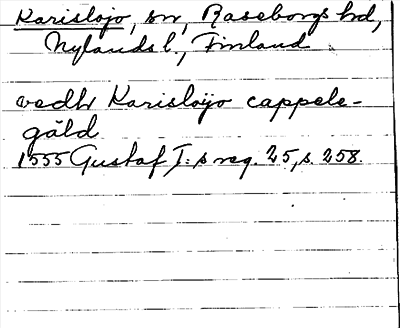 Karislojo, sn, Raseborgs hd,
Nylands l., Finland
vedh Karisloÿo cappele-
gäld
1555 Gustaf I:s reg. 25, s. 258.